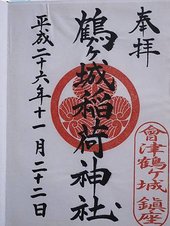 奉拝
鶴ヶ城稲荷神社
平成二十六年十一月二十二日
會津鶴ヶ城鎮座